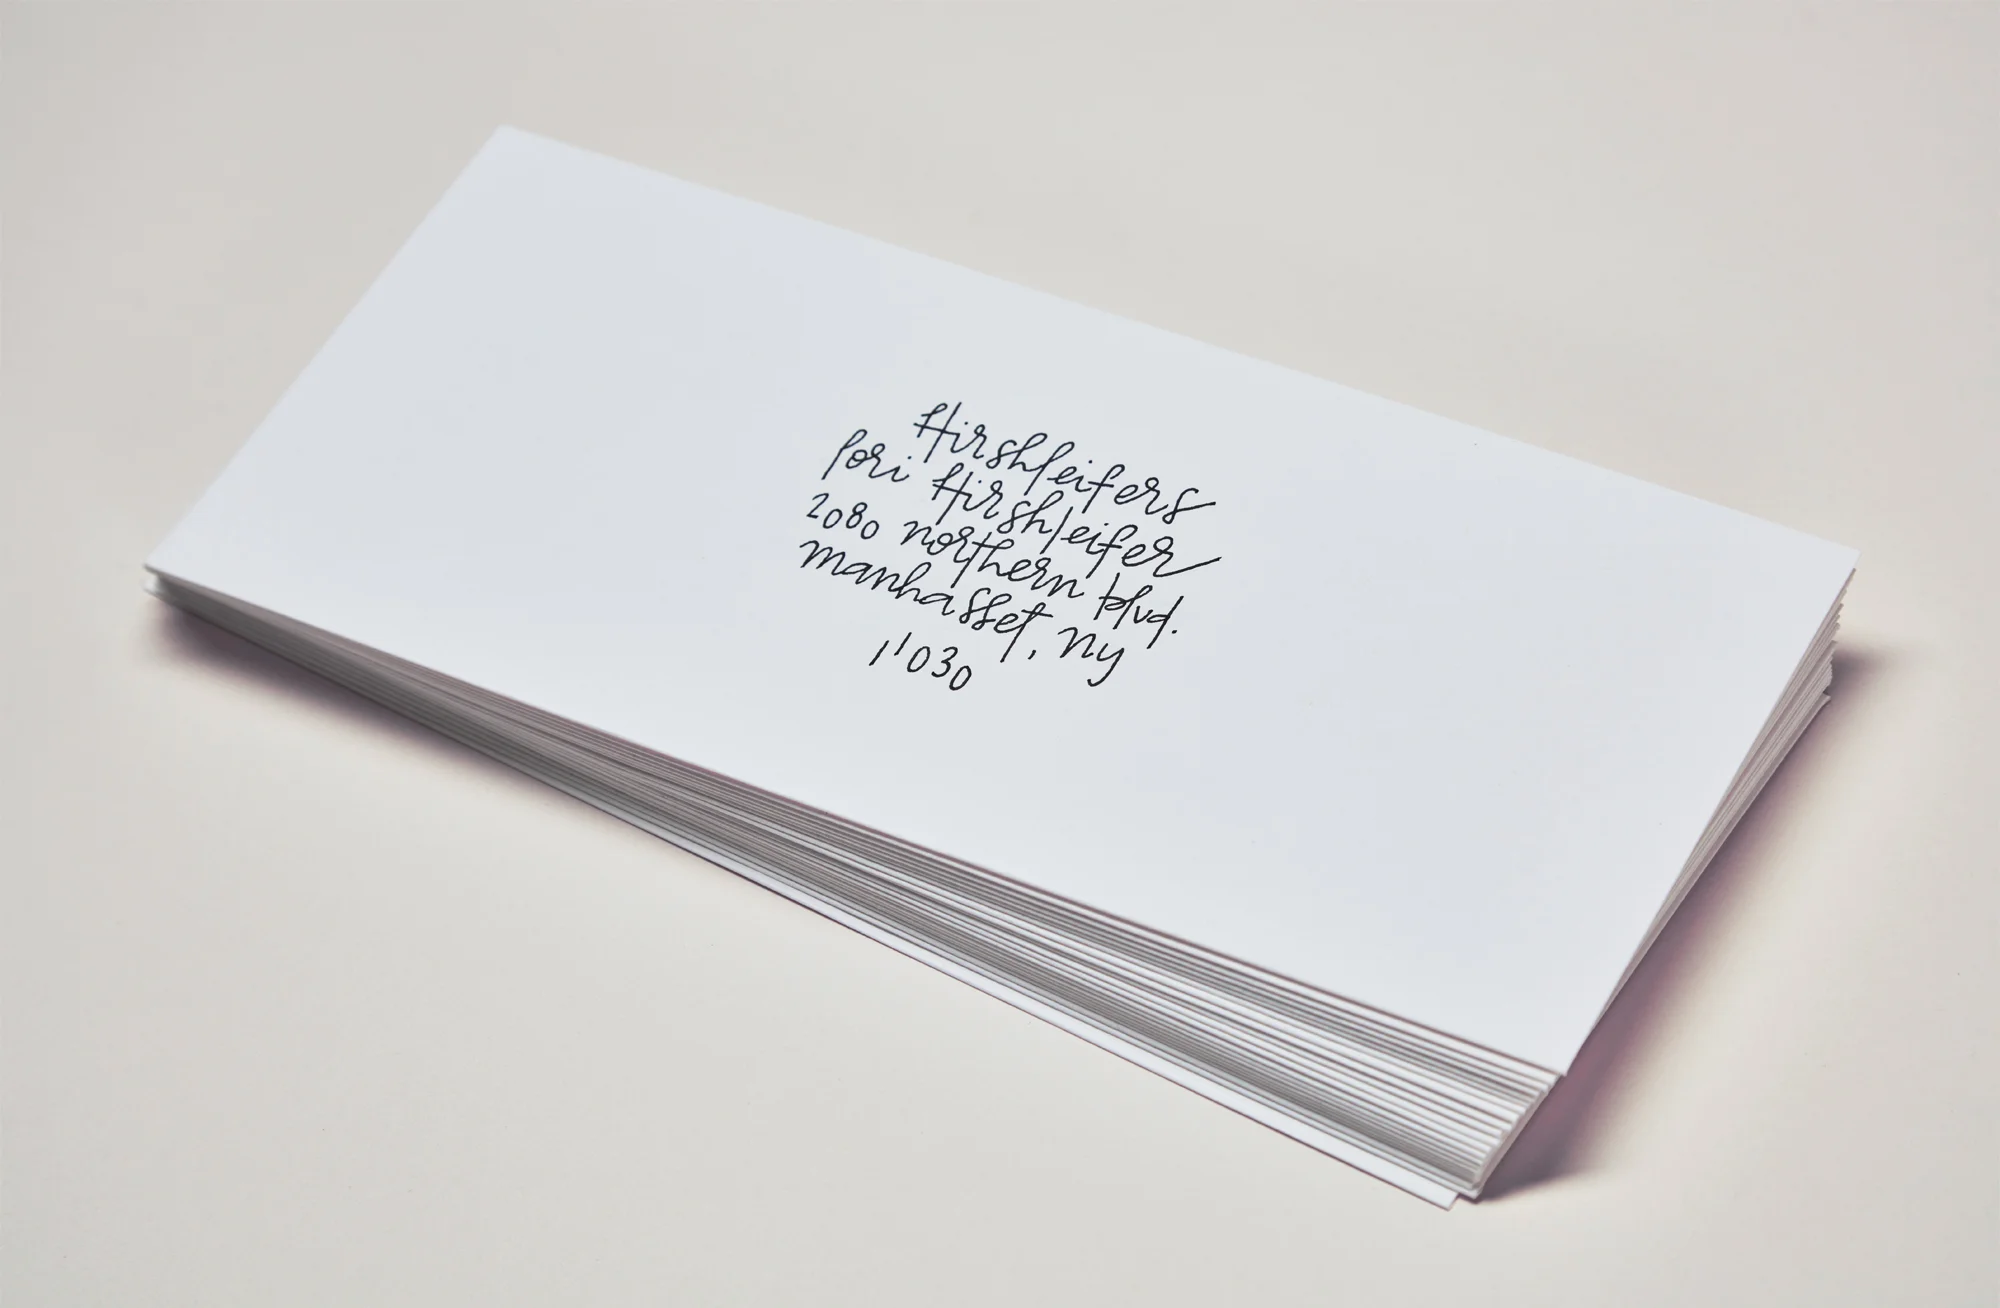 Hirshleifers
lori Hirshleifer
2080 northern blvd.
manhasset, ny
11030